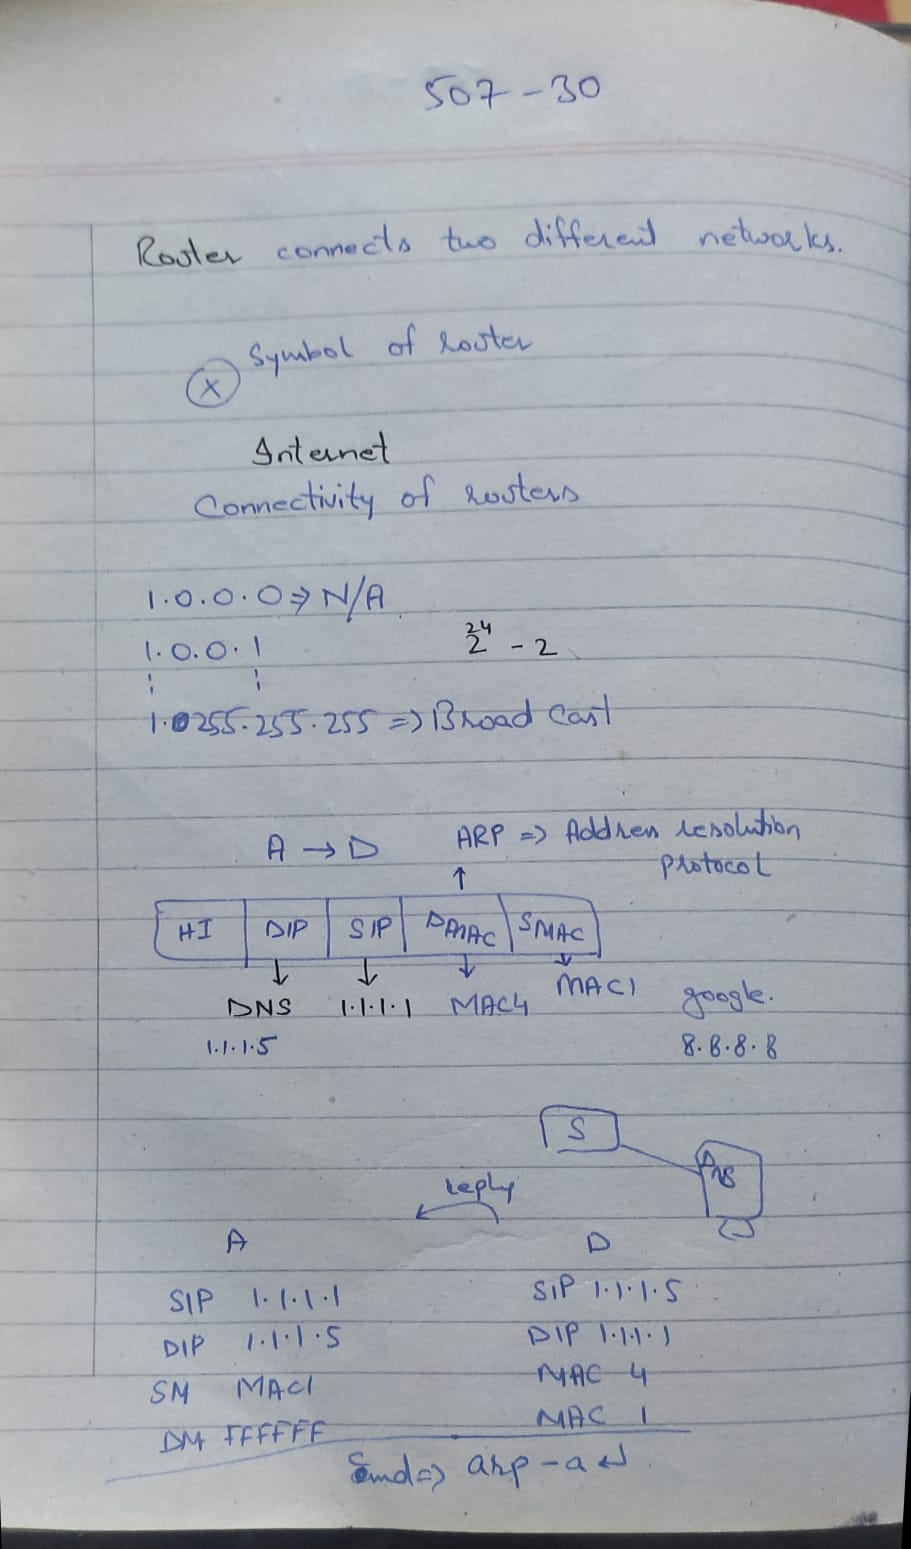 507-30
Router connects two different networks.
Symbol of router
X
Internet
Connectivity of routers
1.0.0.0 => N/A
1.0.0.1 2^24 - 2
1.0255.255.255 => Broad Cast
A → D ARP => Address resolution
protocol
HI DIP SIP DMAC SMAC
DNS 1.1.1.1 MAC4 MAC1 google.
1.1.1.5 8.8.8.8
S
DNS
reply
A D
SIP 1.1.1.1 SIP 1.1.1.5
DIP 1.1.1.5 DIP 1.1.1.1
SM MAC1 MAC 4
DM FFFFFF MAC 1
cmd => arp -a ↵